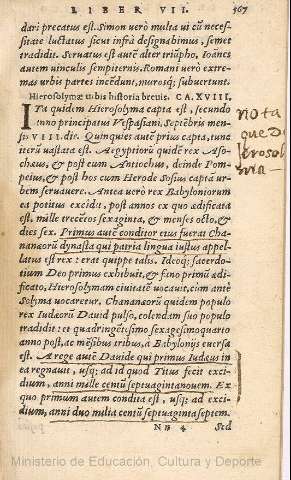 LIBER VII.
567
dari precatus est. Simon verò multa ui cũ neces-
sitate luctatus sicut infrà designabimus, semet
tradidit. Seruatus est autẽ alter triũpho, Ioãnes
autem uinculis sempiternis. Romani verò extre-
mas urbis partes incẽdunt, murosq́; subuertunt.
Hierosolymæ urbis historia breuis. CA. XVIII.
ITa quidem Hierosolyma capta est, secundo
anno principatus Vespasiani, Septẽbris men-
sis VIII. die. Quinquies autẽ prius capta, tunc
iterũ uastata est. Aegyptiorũ quidẽ rex Aso-
chæus, & post eum Antiochus, deinde Pom-
peius, & post hos cum Herode Sosius captã ur-
bem seruauere. Antea uerò rex Babyloniorum
ea potitus excidit, post annos ex quo ædificata
est, mille trecẽtos sexaginta, & menses octo, &
dies sex. Primus autẽ conditor eius fuerat Cha-
nanæorũ dynasta qui patria lingua iustus appel-
latus est rex: erat quippe talis. Ideoq́; sacerdo-
tium Deo primus exhibuit, & fano primũ ædi-
ficato, Hierosolymam ciuitatẽ uocauit, cùm ante
Solyma uocaretur. Chananæorũ quidem populo
rex Iudæorũ Dauid pulso, colendam suo populo
tradidit: et quadringẽtesimo sexagesimoquarto
anno post, ac mẽsibus tribus, à Babylonijs euersa
est. A rege autẽ Dauide qui primus Iudæus in
ea regnauit, usq́; ad id quod Titus fecit exci-
dium, anni mille centũ septuagintanouem. Ex
quo primum autem condita est, usq́; ad exci-
dium, anni duo millia centũ septuagintaseptem.
Nn 4
Sed
nota
que
Ministerio de Educación, Cultura y Deporte